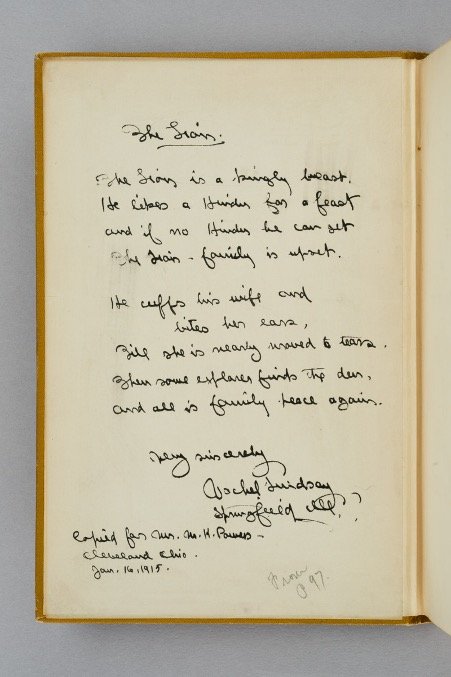 The Lion.
The Lion is a kingly beast.
He likes a Hindu for a feast
and if no Hindu he can get
The Lion-family is upset.
He cuffs his wife and
bites her ears,
Till she is nearly moved to tears.
Then some explorer finds the den,
and all is family peace again.
Very sincerely
Vachel Lindsay
Springfield Ill.
Copied for Mrs. M. H. Powers -
Cleveland Ohio.
Jan. 16, 1915.
From
p 97.